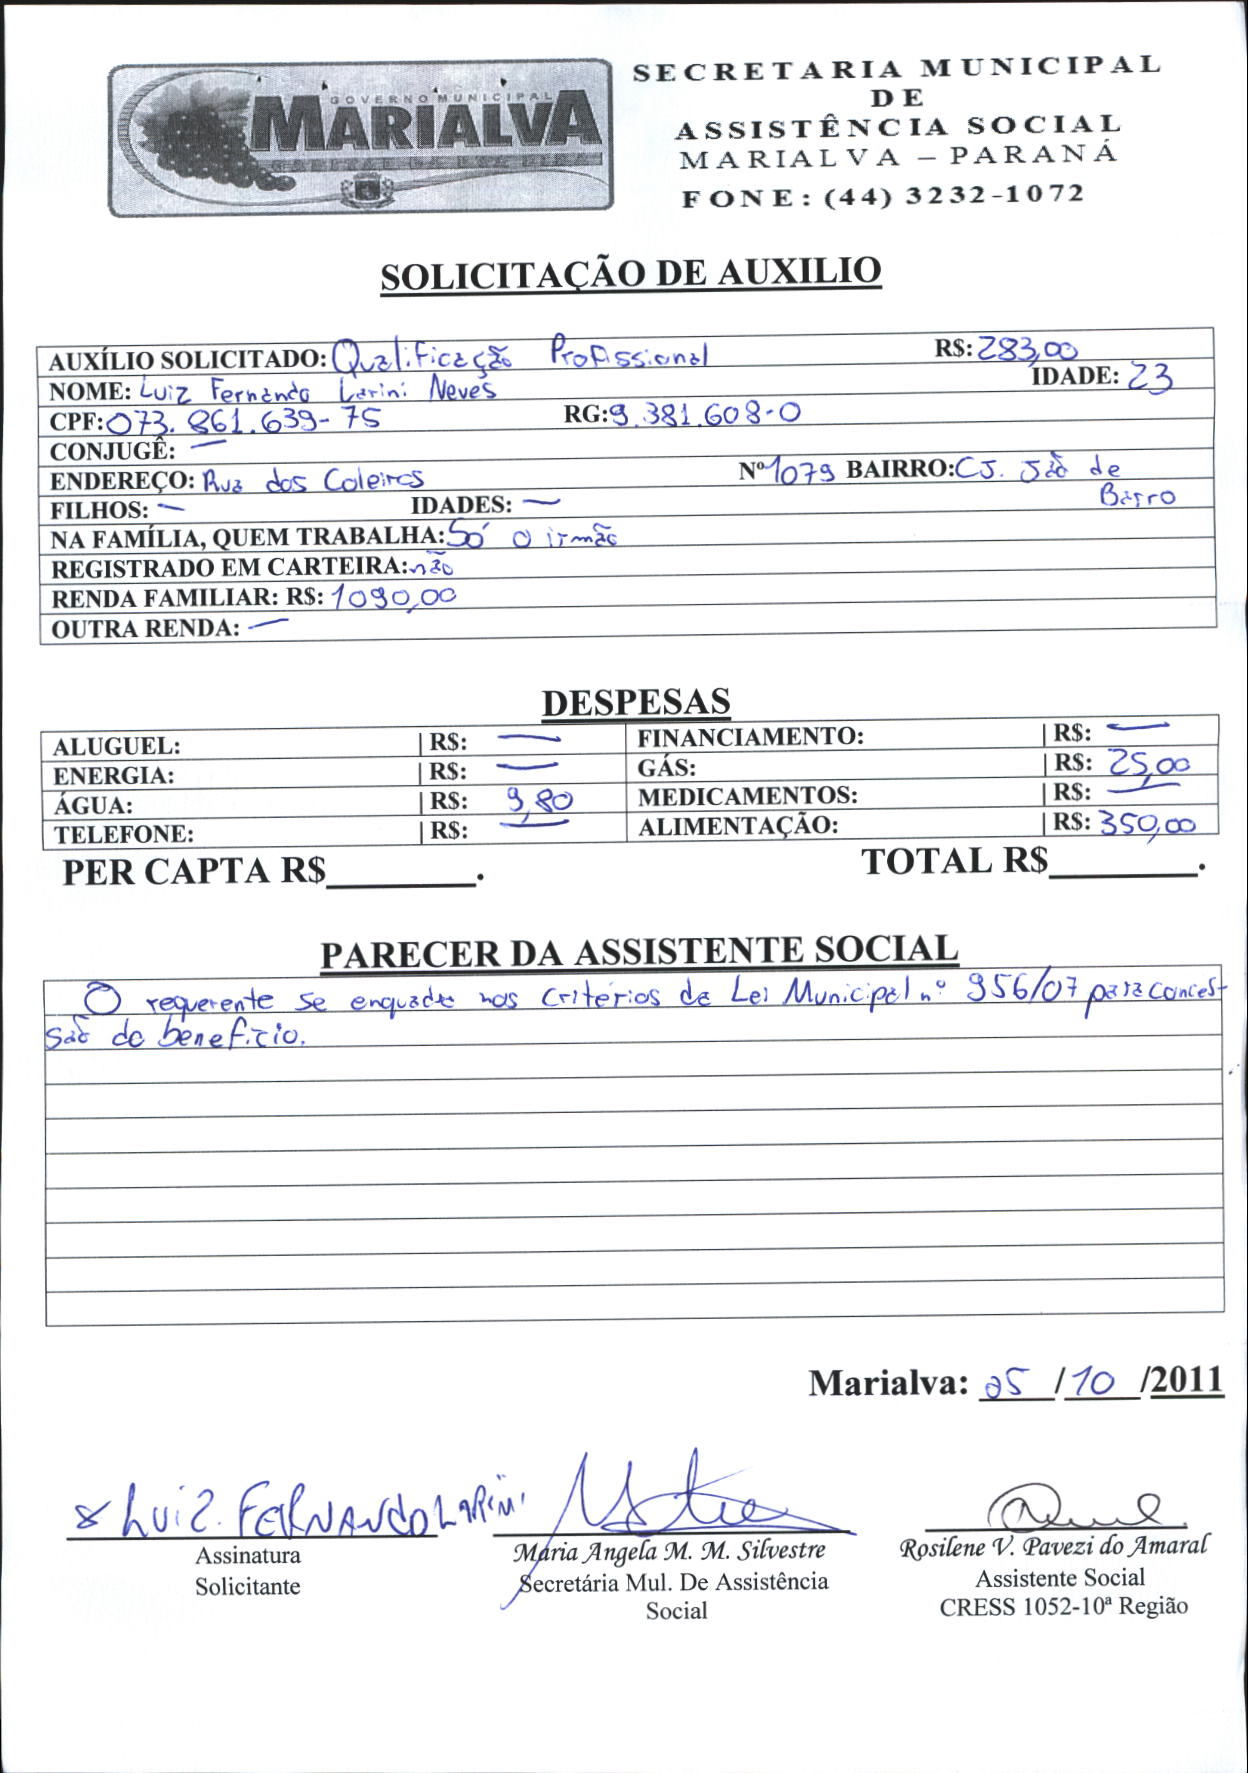 GOVERNO MUNICIPAL
MARIALVA
SECRETARIA MUNICIPAL
DE
ASSISTÊNCIA SOCIAL
MARIALVA – PARANÁ
FONE: (44) 3232-1072
SOLICITAÇÃO DE AUXILIO
AUXÍLIO SOLICITADO: Qualificação Profissional R$: 283,00
NOME: Luiz Fernando Larini Neves IDADE: 23
CPF: 073.861.639-75 RG: 9.381.608-0
CONJUGÊ: —
ENDEREÇO: Rua dos Coleiros Nº 1079 BAIRRO: CJ. João de
Barro
FILHOS: — IDADES: —
NA FAMÍLIA, QUEM TRABALHA: Só o irmão
REGISTRADO EM CARTEIRA: não
RENDA FAMILIAR: R$: 1090,00
OUTRA RENDA: —
DESPESAS
ALUGUEL: | R$: — FINANCIAMENTO: | R$: —
ENERGIA: | R$: — GÁS: | R$: 25,00
ÁGUA: | R$: 9,80 MEDICAMENTOS: | R$: —
TELEFONE: | R$: — ALIMENTAÇÃO: | R$: 350,00
PER CAPTA R$________. TOTAL R$________.
PARECER DA ASSISTENTE SOCIAL
O requerente se enquadra nos critérios da Lei Municipal nº 956/07 para conces-
são do benefício.
Marialva: 05 /10 /2011
x Luiz. FERNANDO LARINI
Assinatura
Solicitante
Maria Angela M. M. Silvestre
Secretária Mul. De Assistência
Social
Rosilene V. Pavezi do Amaral
Assistente Social
CRESS 1052-10ª Região